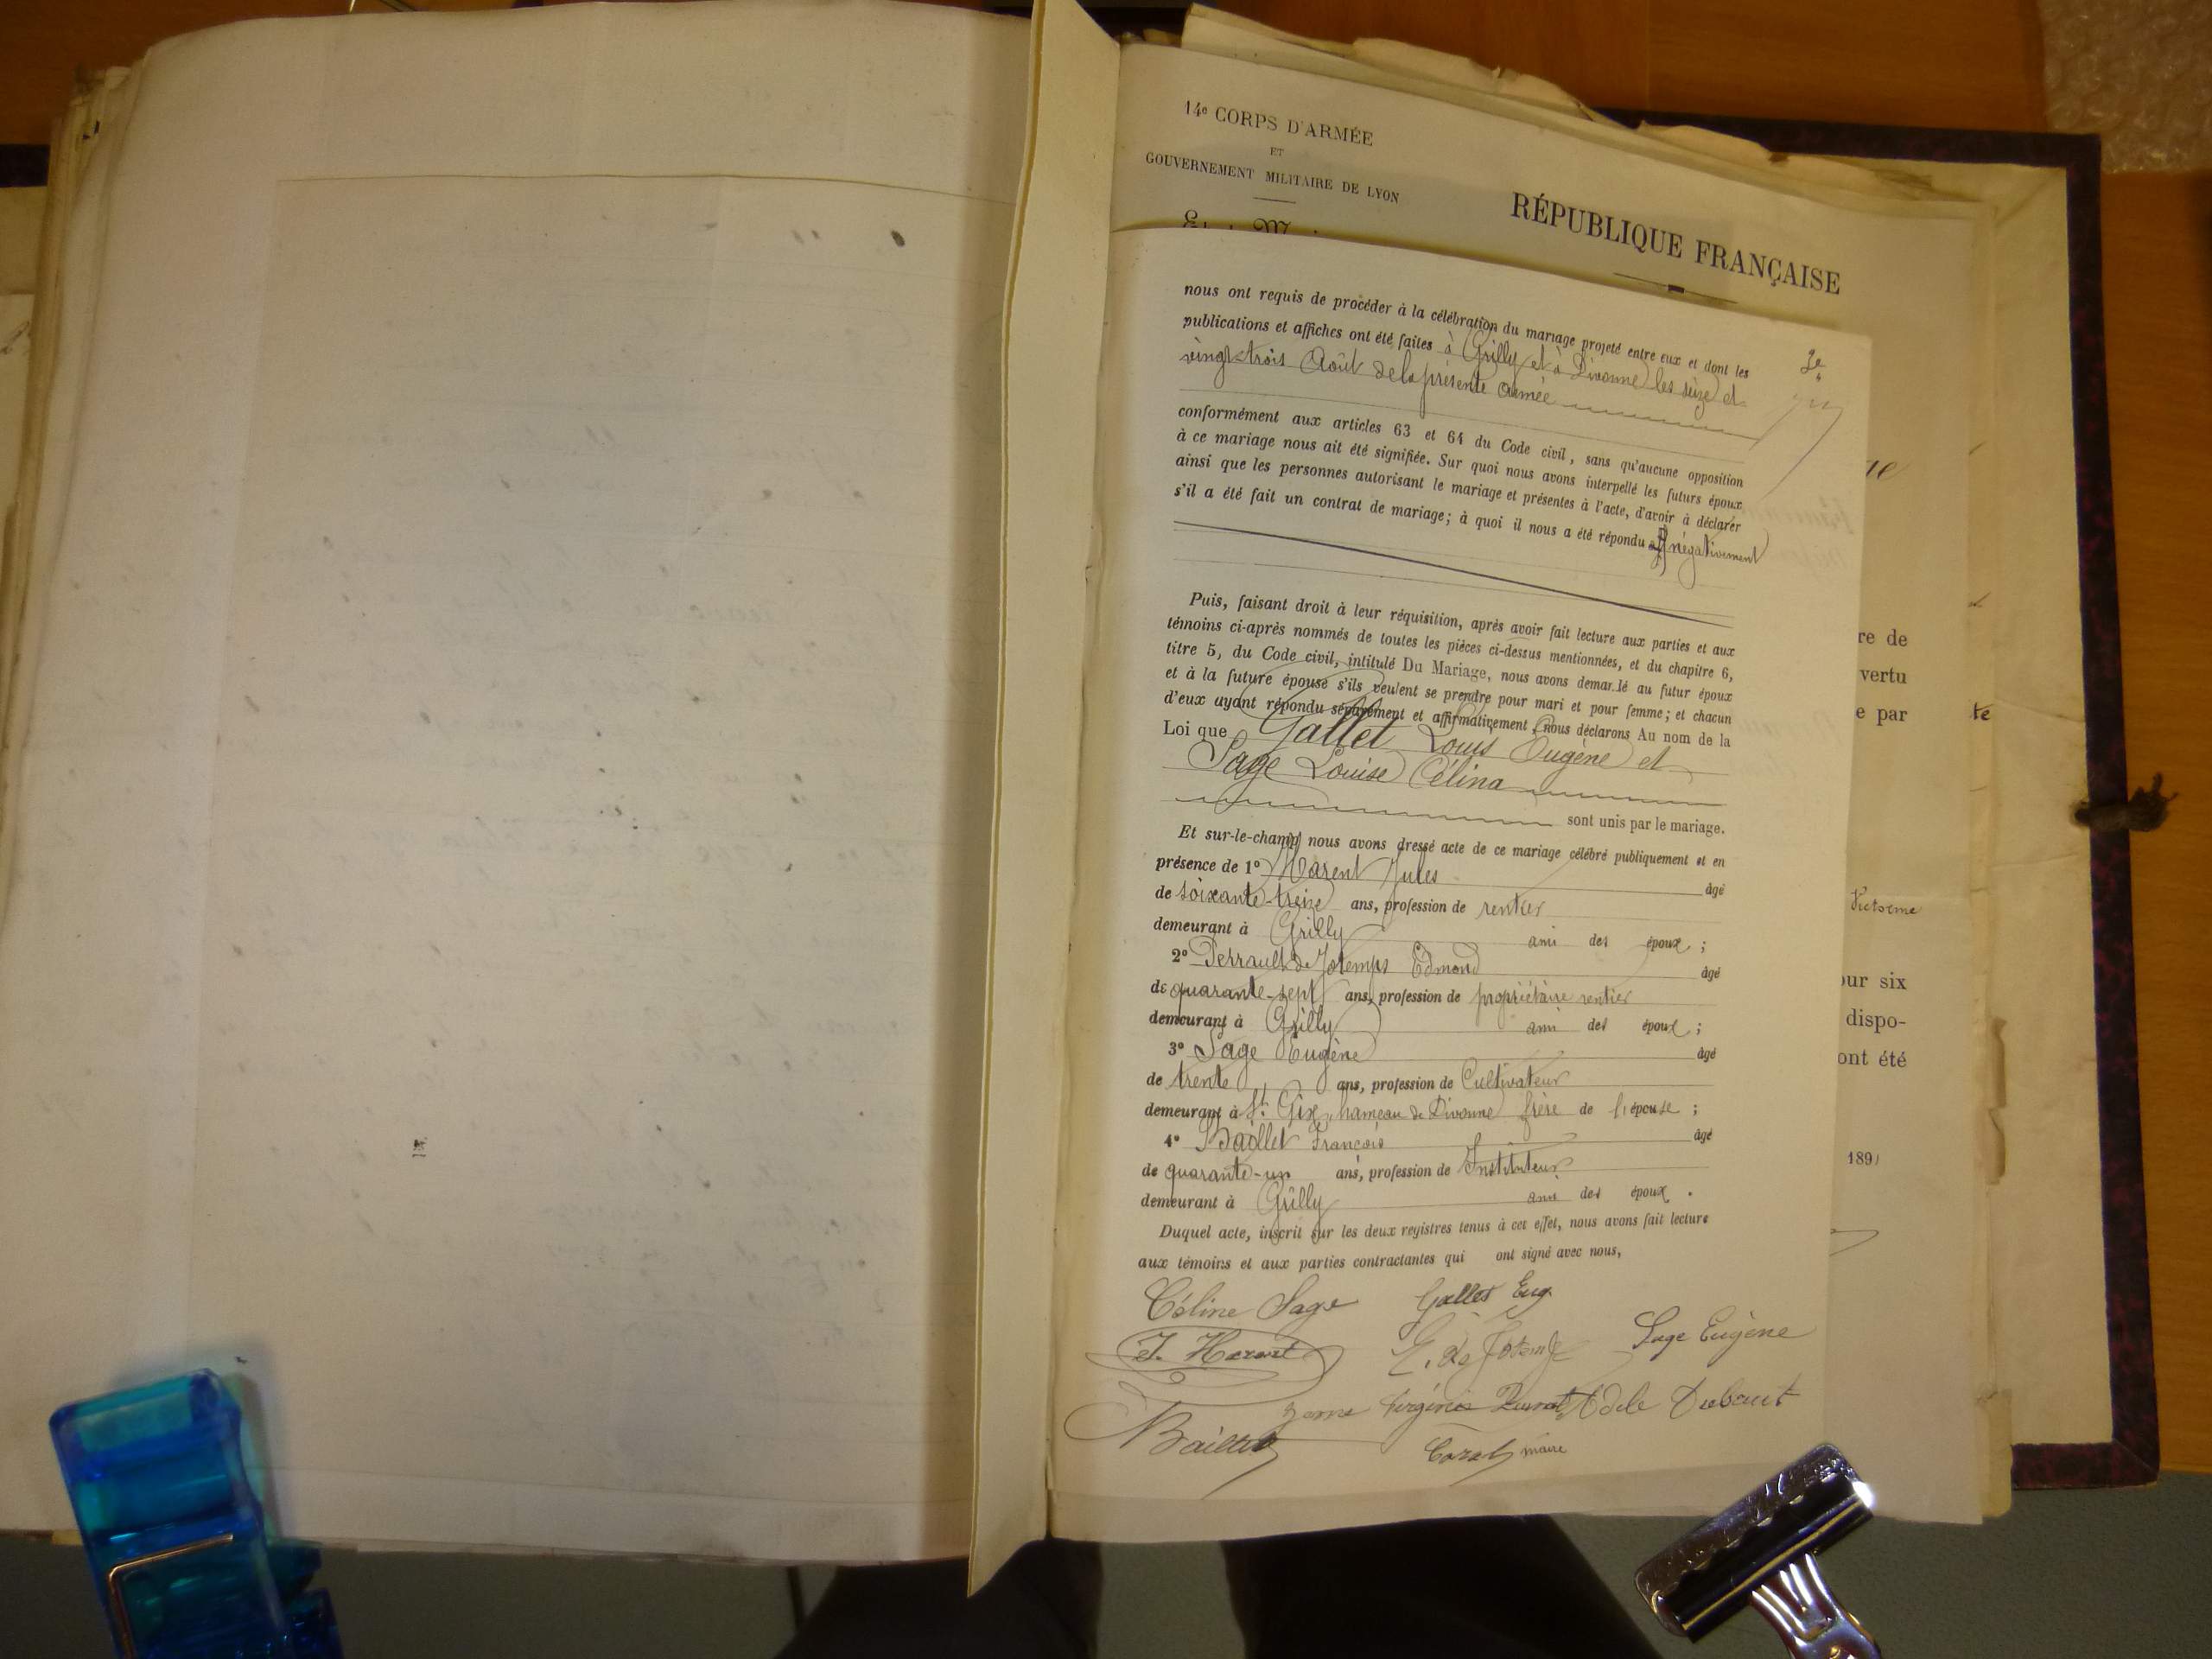 14e CORPS D'ARMÉE
ET
GOUVERNEMENT MILITAIRE DE LYON
RÉPUBLIQUE FRANÇAISE
nous ont requis de procéder à la célébration du mariage projeté entre eux et dont les
publications et affiches ont été faites à Grilly et à Divonne les seize et
vingt-trois Août de la présente année
conformément aux articles 63 et 64 du Code civil, sans qu'aucune opposition
à ce mariage nous ait été signifiée. Sur quoi nous avons interpellé les futurs époux
ainsi que les personnes autorisant le mariage et présentes à l'acte, d'avoir à déclarer
s'il a été fait un contrat de mariage; à quoi il nous a été répondu négativement
Puis, faisant droit à leur réquisition, après avoir fait lecture aux parties et aux
témoins ci-après nommés de toutes les pièces ci-dessus mentionnées, et du chapitre 6,
titre 5, du Code civil, intitulé Du Mariage, nous avons demandé au futur époux
et à la future épouse s'ils veulent se prendre pour mari et pour femme; et chacun
d'eux ayant répondu séparément et affirmativement, nous déclarons Au nom de la
Loi que Gallet Louis Eugène et
Sage Louise Célina
sont unis par le mariage.
Et sur-le-champ nous avons dressé acte de ce mariage célébré publiquement et en
présence de 1° Harent Jules âgé
de soixante-treize ans, profession de rentier
demeurant à Grilly ami des époux;
2° Perrault de Jotemps Edmond âgé
de quarante-sept ans, profession de propriétaire rentier
demeurant à Grilly ami des époux;
3° Sage Eugène âgé
de trente ans, profession de Cultivateur
demeurant à St. Gix, hameau de Divonne frère de l'épouse;
4° Baillet François âgé
de quarante-un ans, profession de Instituteur
demeurant à Grilly ami des époux.
Duquel acte, inscrit sur les deux registres tenus à cet effet, nous avons fait lecture
aux témoins et aux parties contractantes qui ont signé avec nous,
Céline Sage Gallet Eug.
J. Harent E. de Jotemps Sage Eugène
Adele Dubout
Baillet maire
re de
vertu
e par
te
Victoime
our six
dispo-
ont été
1891